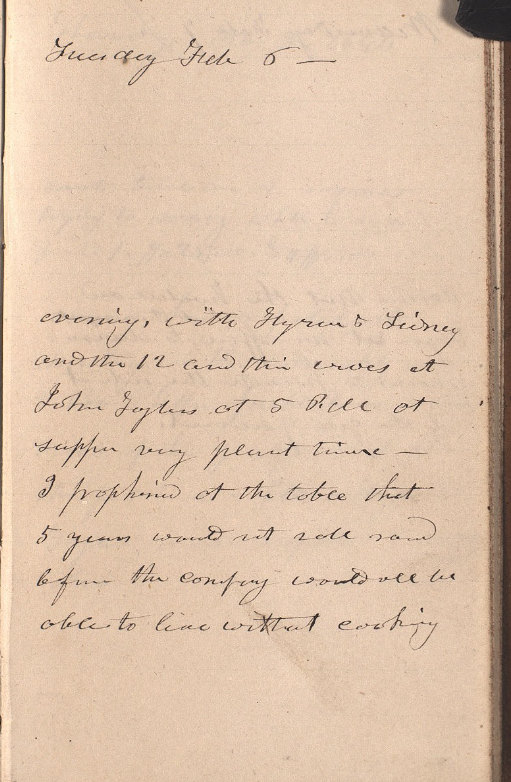 Tuesday Feb 6 —
evening, with Hyrum & Sidney
and the 12 and thin wives at
John Taylers at 5 P.M at
supper very plesnt time —
I prophesied at the table that
5 years would not roll round
before the company would all be
able to live without cooking